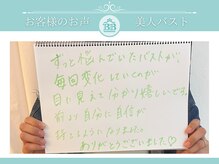 お客様のお声
美人バスト
ずっと悩んでいたバストが、
毎回変化していくのが
目に見えて分かり嬉しいです。
前より自分に自信が
持てるようになりました。
ありがとうございました♡